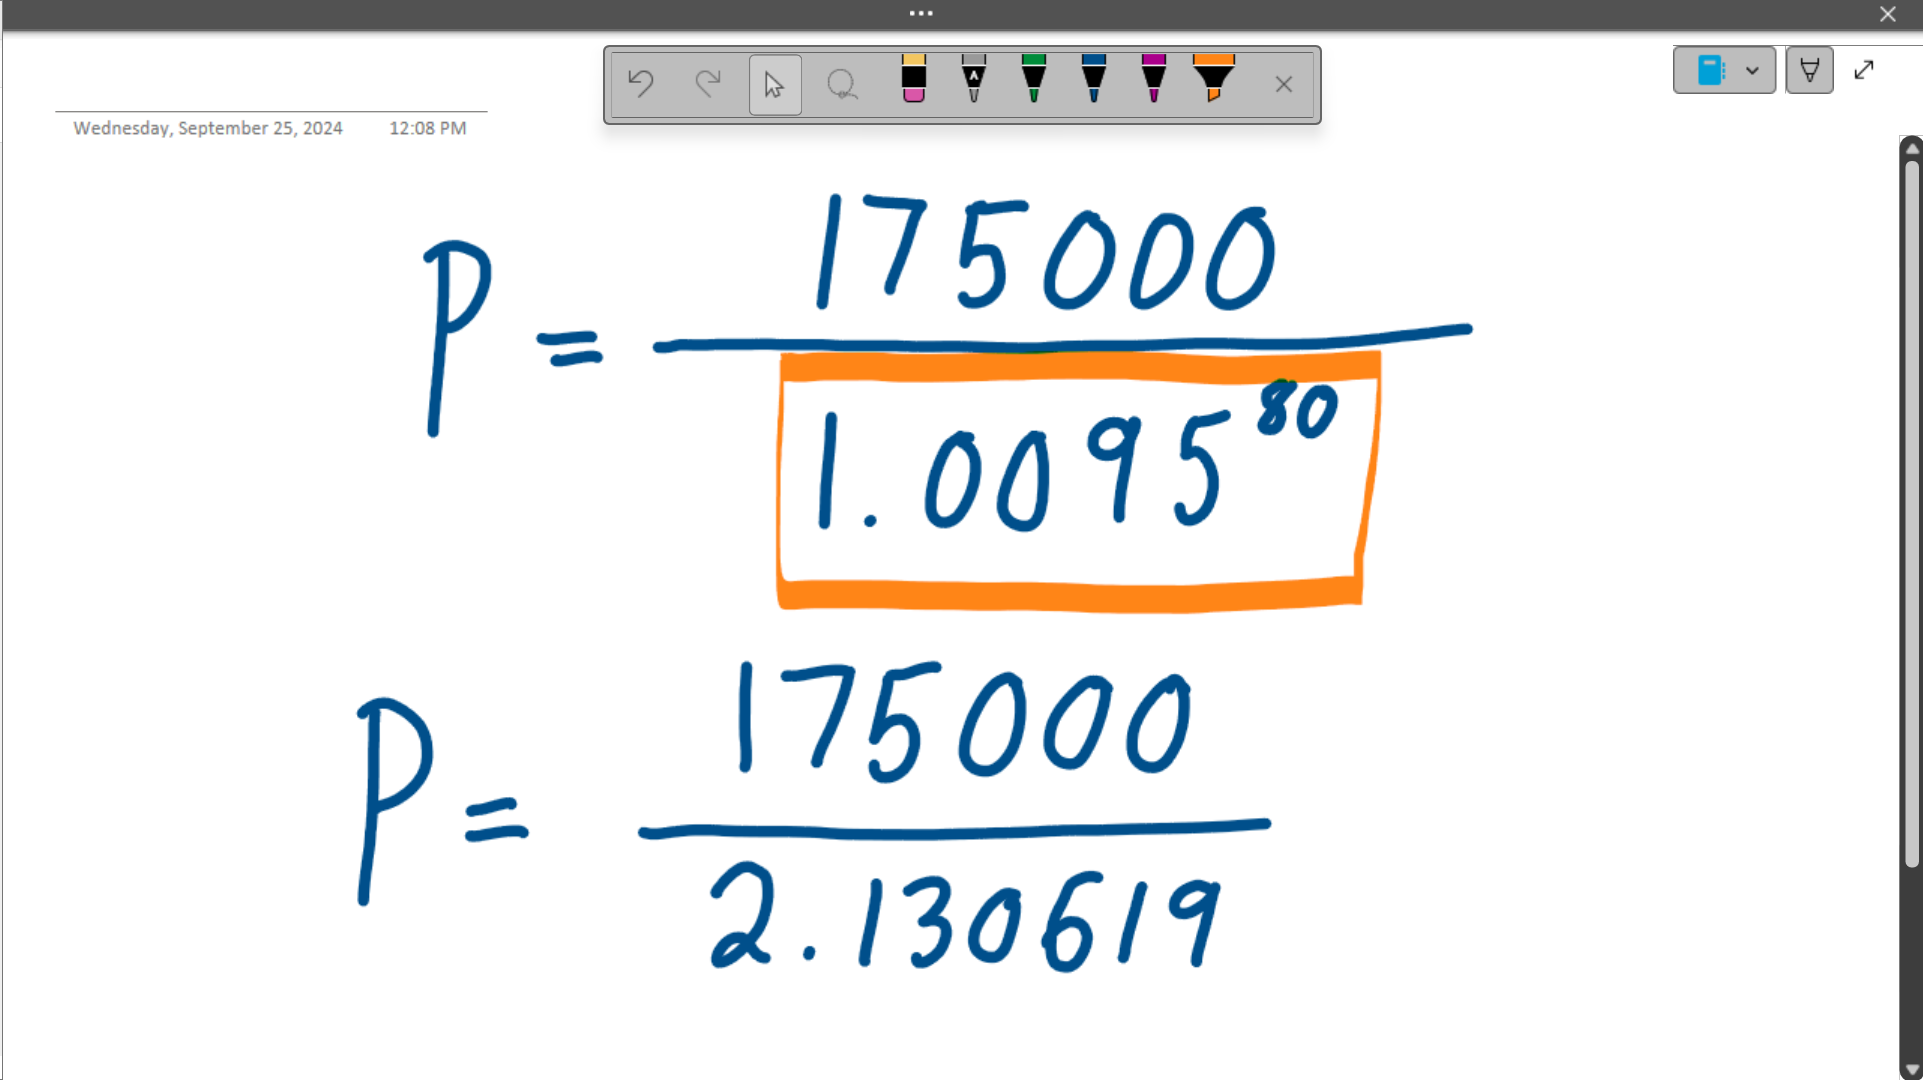 Wednesday, September 25, 2024 12:08 PM
P = 175000
1.0095^80
P = 175000
2.130619